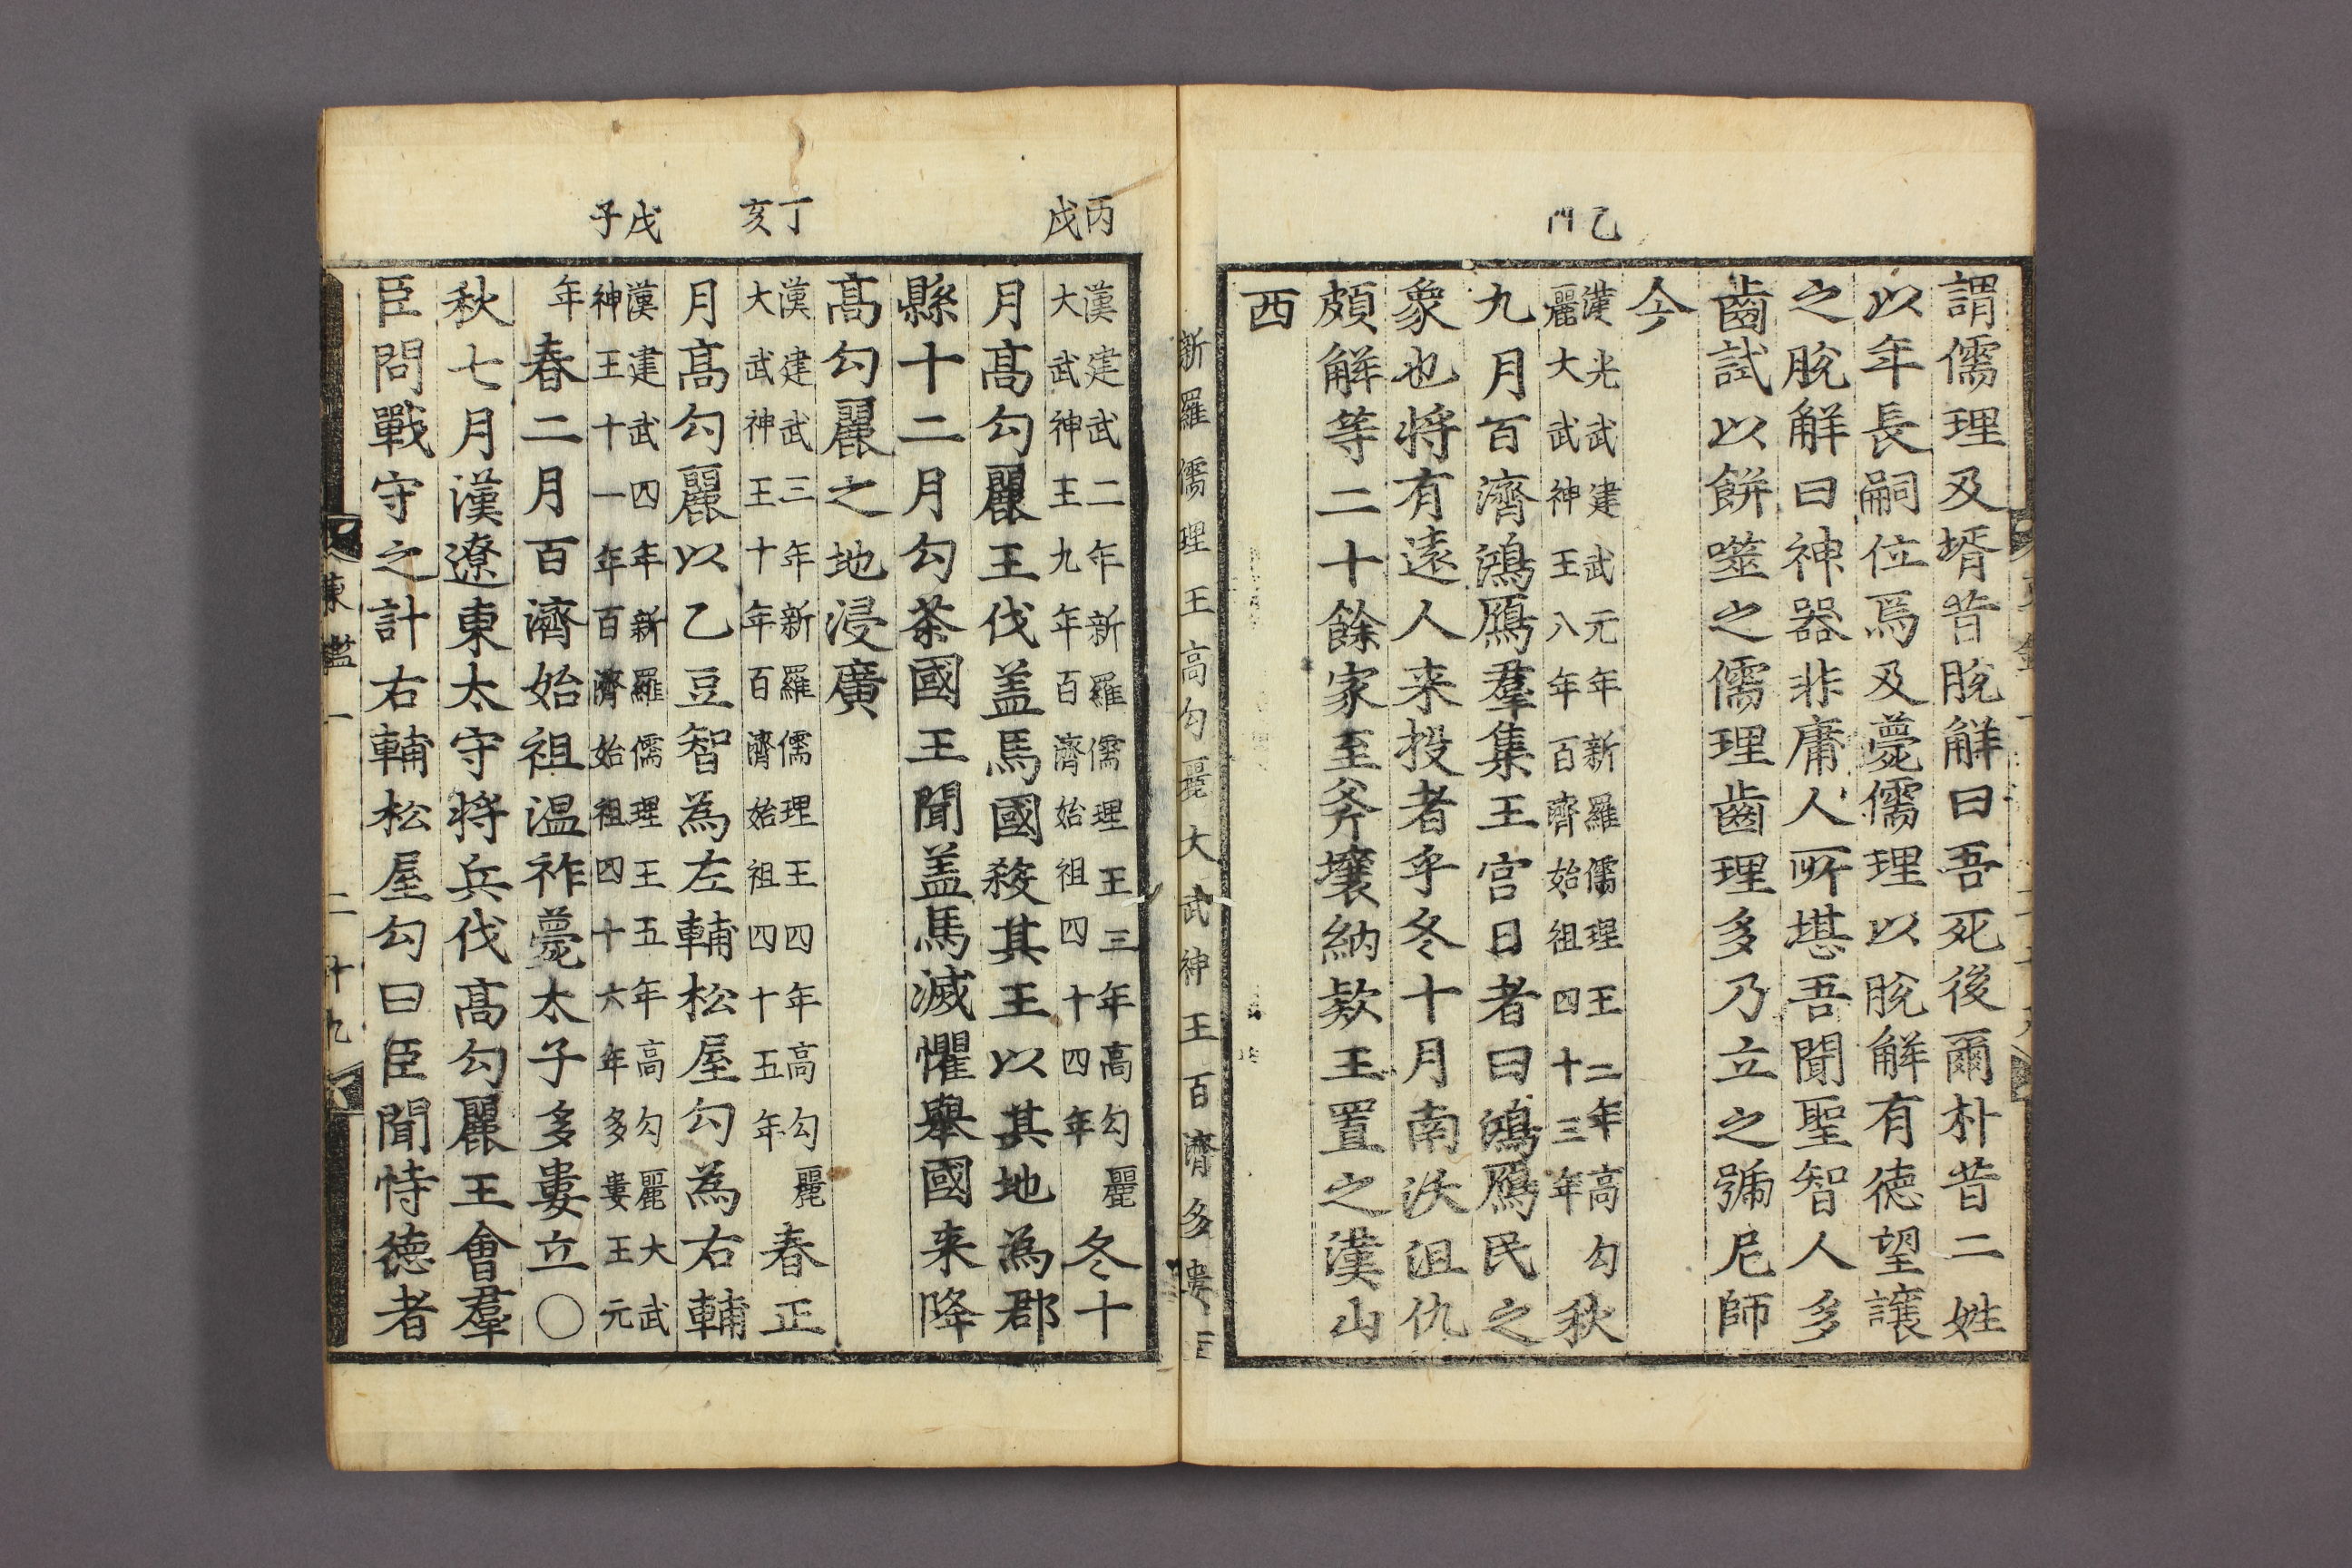 謂儒理及壻昔脫解曰吾死後爾朴昔二姓
以年長嗣位焉及薨儒理以脫解有徳望讓
之脫解曰神器非庸人所堪吾聞聖智人多
齒試以餅噬之儒理齒理多乃立之號尼師
今
乙
漢光武建武元年新羅儒理王二年高勾
麗大武神王八年百濟始祖四十三年
秋
九月百濟鴻鴈羣集王宫日者曰鴻鴈民之
象也将有遠人来投者乎冬十月南沃沮仇
頗解等二十餘家至斧壤納款王置之漢山
西
新羅儒理王高勾麗大武神王百濟多婁王
丙戌
漢建武二年新羅儒理王三年高勾麗
大武神王九年百濟始祖四十四年
冬十
月高勾麗王伐盖馬國殺其王以其地為郡
縣十二月勾茶國王聞盖馬滅懼舉國来降
高勾麗之地浸廣
丁亥
漢建武三年新羅儒理王四年高勾麗
大武神王十年百濟始祖四十五年
春正
月高勾麗以乙豆智為左輔松屋勾為右輔
戊子
漢建武四年新羅儒理王五年高勾麗大武
神王十一年百濟始祖四十六年多婁王元
年
春二月百濟始祖温祚薨太子多婁立〇
秋七月漢遼東太守将兵伐高勾麗王會羣
臣問戰守之計右輔松屋勾曰臣聞恃徳者
東鑑一
二十九